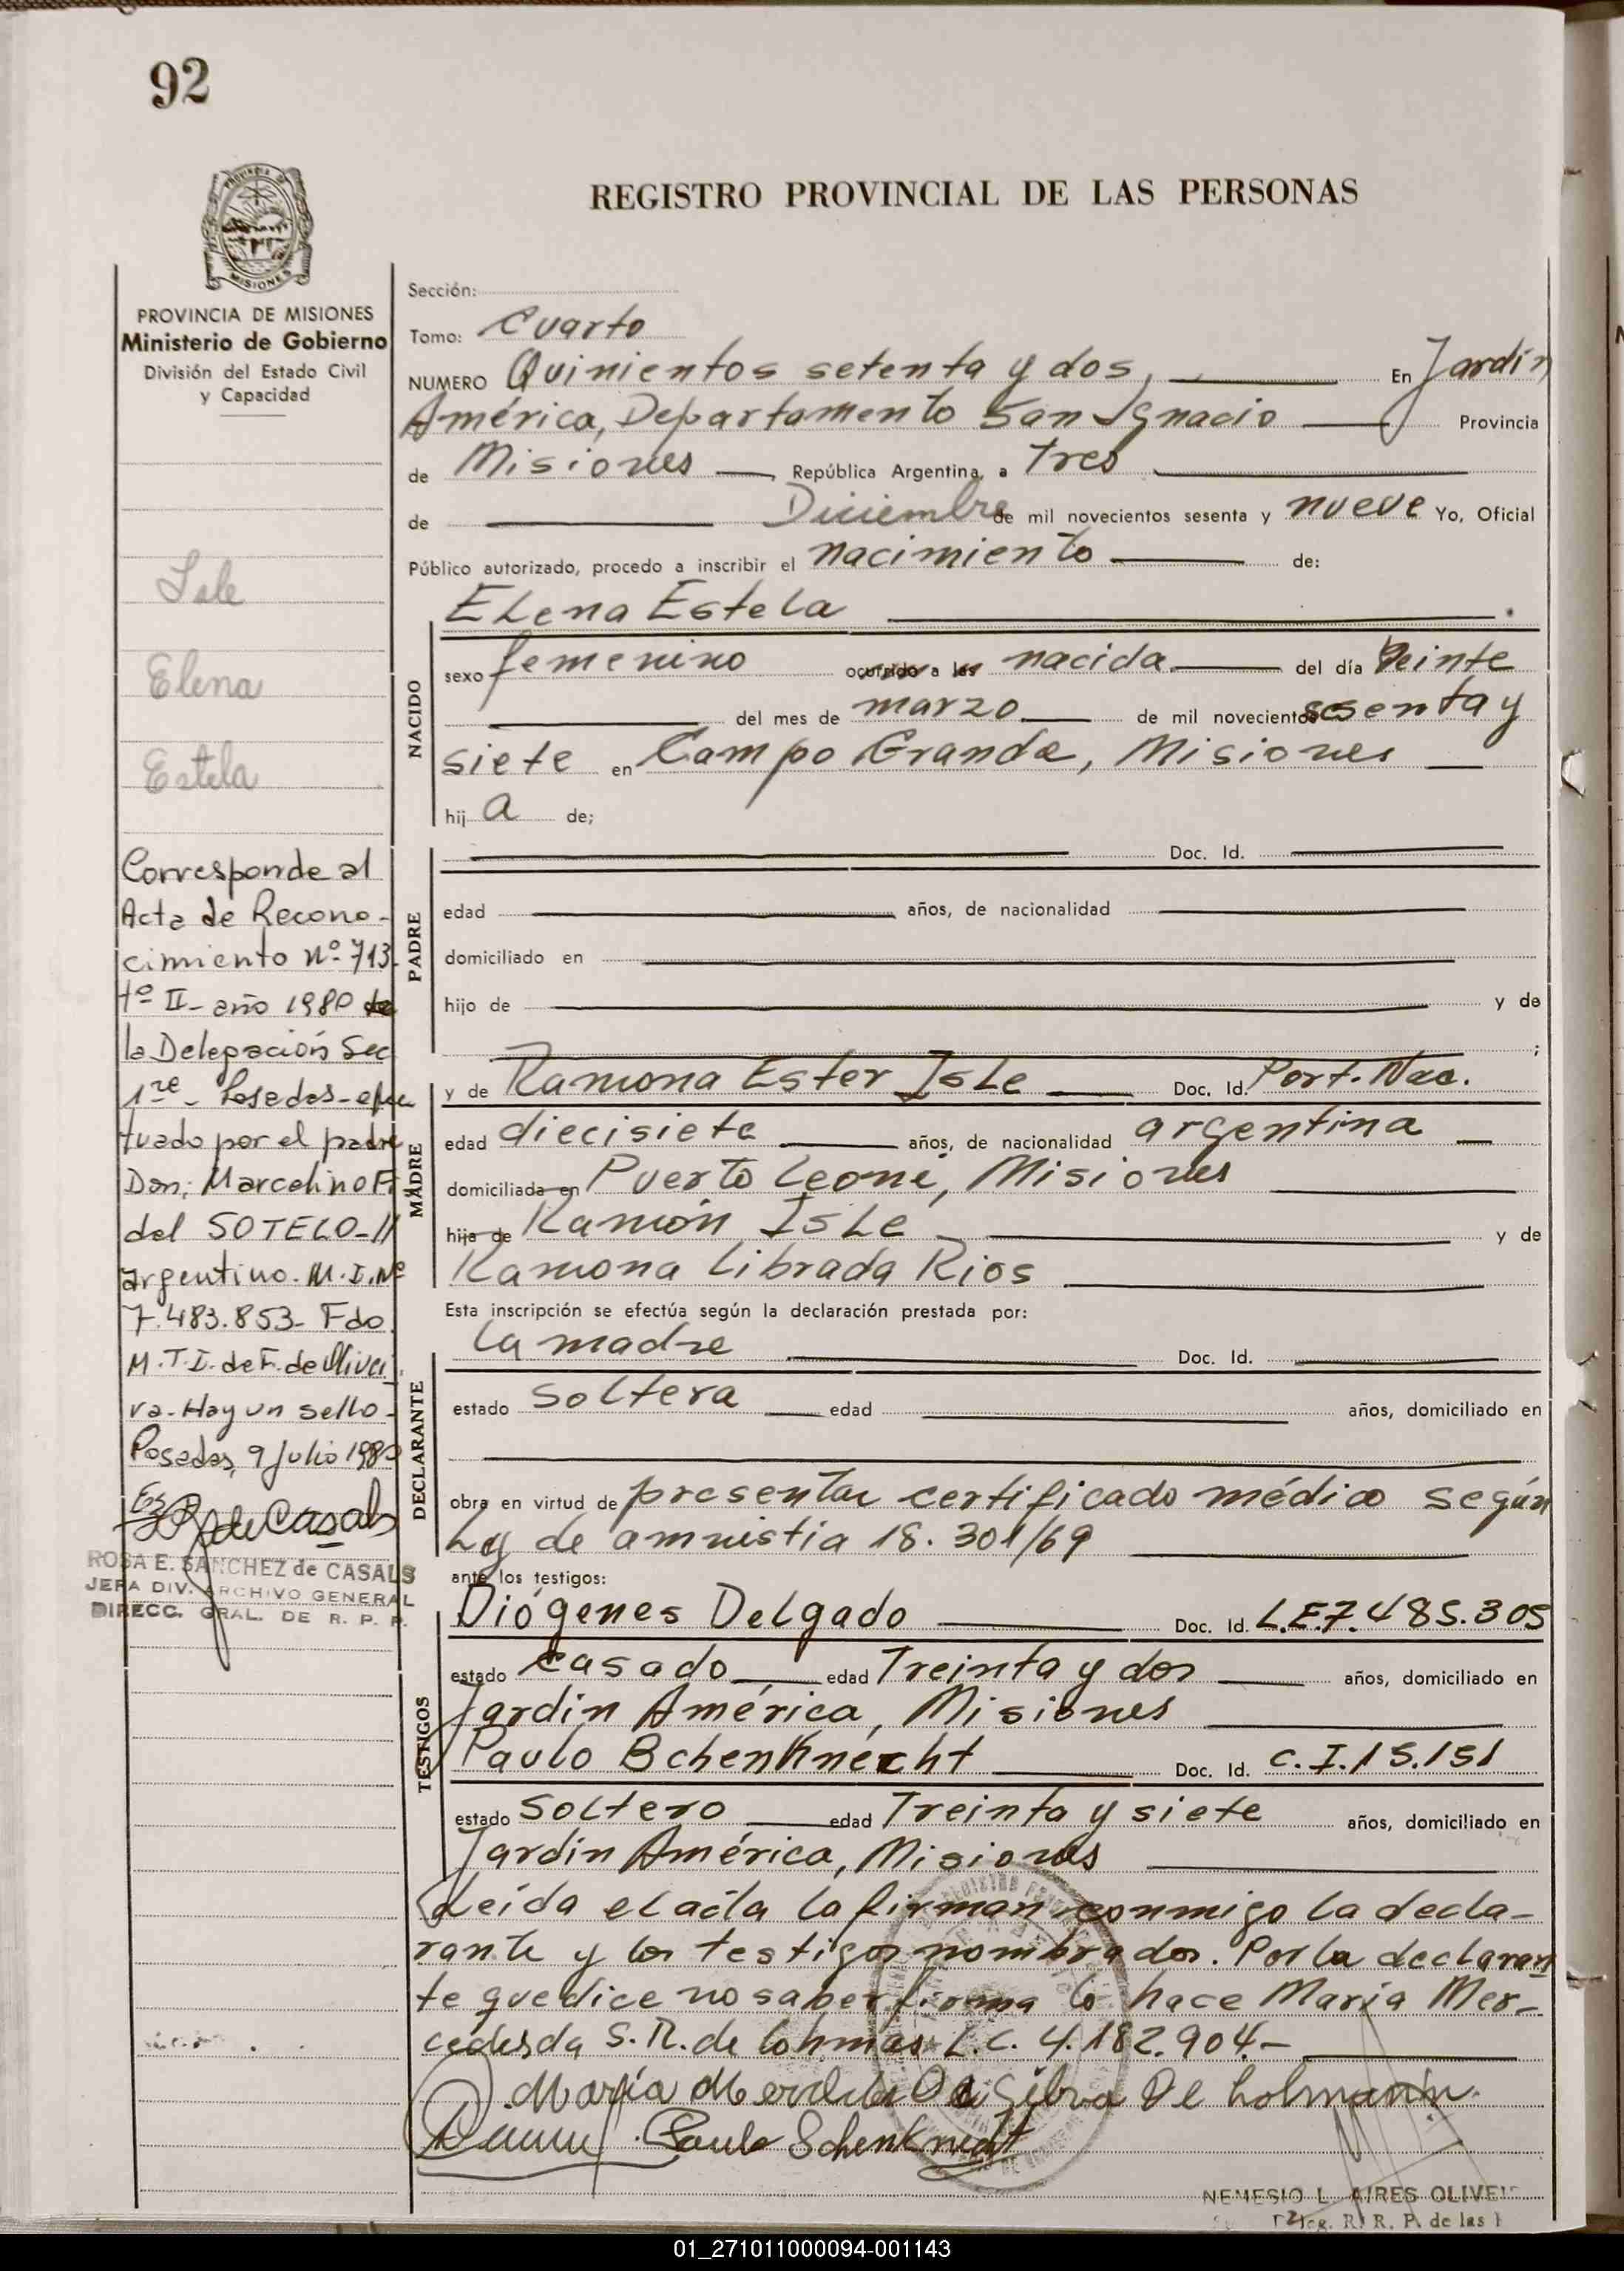 92
REGISTRO PROVINCIAL DE LAS PERSONAS
PROVINCIA DE
MISIONES
PROVINCIA DE MISIONES
Ministerio de Gobierno
División del Estado Civil
y Capacidad
Isle
Elena
Estela
Corresponde al
Acta de Recono-
cimiento Nº 713.
tº II- año 1980 de
la Delegación Sec
1ra - Posadas - efec
tuado por el padre
Don; Marcelino Fi
del SOTELO-//
argentino. M.I.Nº
7.483.853- Fdo.
M.T.I. de F. de Olivei
ra - Hay un sello -
Posadas, 9 Julio 1980
R S de Casals
ROSA E. SANCHEZ de CASALS
JEFA DIV. ARCHIVO GENERAL
DIRECC. GRAL. DE R. P. P.
Sección:
Tomo: Cuarto
NUMERO Quinientos setenta y dos, En Jardín
América, Departamento San Ignacio Provincia
de Misiones República Argentina, a Tres
de Diciembre de mil novecientos sesenta y nueve Yo, Oficial
Público autorizado, procedo a inscribir el nacimiento de:
NACIDO
Elena Estela
sexo femenino ocurrido a las nacida del día Veinte
del mes de marzo de mil novecientos sesenta y
siete en Campo Grande, Misiones
hij a de;
PADRE
Doc. Id.
edad años, de nacionalidad
domiciliado en
hijo de y de
;
MADRE
y de Ramona Ester Isle Doc. Id. Part. Nac.
edad diecisiete años, de nacionalidad argentina
domiciliada en Puerto Leoni, Misiones
hija de Ramón Isle y de
Ramona Librada Rios
Esta inscripción se efectúa según la declaración prestada por:
DECLARANTE
la madre Doc. Id.
estado soltera edad años, domiciliado en
obra en virtud de presentar certificado médico según
Ley de amnistia 18.301/69
ante los testigos:
TESTIGOS
Diógenes Delgado Doc. Id. L.E.7.485.305
estado casado edad Treinta y dos años, domiciliado en
Jardín América, Misiones
Paulo Schenknecht Doc. Id. C.I.15.151
estado soltero edad Treinta y siete años, domiciliado en
Jardín América, Misiones
Leída el acta la firman conmigo la decla-
rante y los testigos nombrados. Por la declaran
te que dice no saber firmar lo hace Maria Mer-
cedes da S.R. de Lohman L.C. 4.182.904.-
María Mercedes Da Silva De Lohmann.
Paulo Schenknecht
NEMESIO L. AIRES OLIVEI
R. R. P. de las
01_271011000094-001143